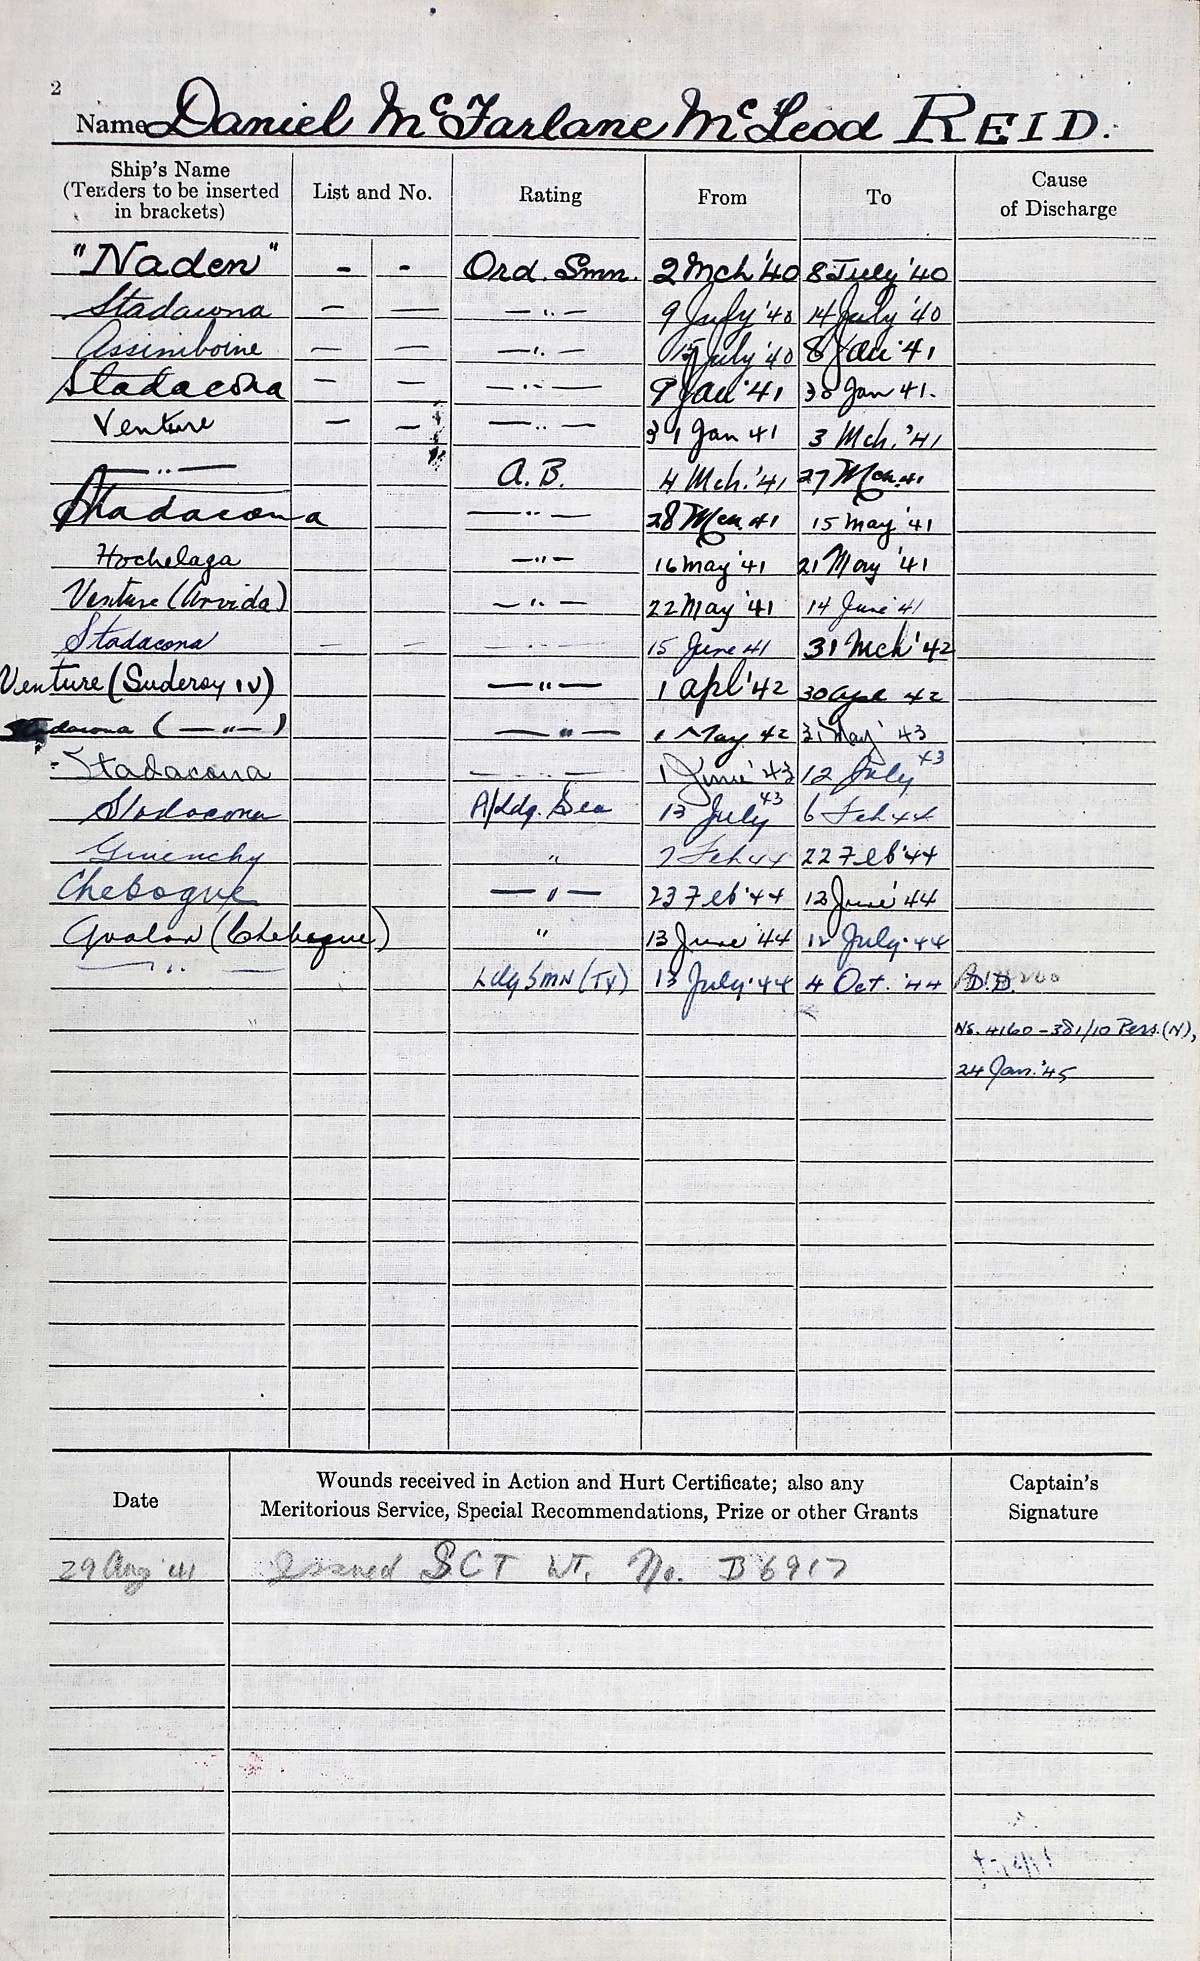 2
Name Daniel McFarlane McLeod REID.
Ship's Name (Tenders to be inserted in brackets) List and No. Rating From To Cause of Discharge
"Naden" - - Ord. Smn. 2 Mch '40 8 July '40
Stadacona — — —..— 9 July '40 14 July '40
Assiniboine — — —..— 15 July '40 8 Jan '41
Stadacona — — —..— 9 Jan '41 30 Jan 41.
Venture — — —..— 31 Jan 41 3 Mch. '41
—..— A.B. 4 Mch. '41 27 Mch. 41
Stadacona —..— 28 Mch. 41 15 May '41
Hochelaga —..— 16 May '41 21 May '41
Venture (Arvida) —..— 22 May '41 14 June '41
Stadacona — — —..— 15 June 41 31 Mch '42
Venture (Suderoy IV) —"— 1 Apl '42 30 Apl 42
Stadacona (—"—) —"— 1 May 42 31 May '43
Stadacona —..— 1 June '43 12 July 43
Stadacona A/Ldg. Sea 13 July 43 6 Feb 44
Givenchy " 7 Feb 44 22 Feb '44
Chebogue —"— 23 Feb '44 12 June '44
Avalon (Chebogue) " 13 June '44 12 July '44
—..— Ldg Smn (TV) 13 July '44 4 Oct. '44 D.D.
NS. 4160-381/10 Pers. (N),
24 Jan. '45
Date Wounds received in Action and Hurt Certificate; also any Meritorious Service, Special Recommendations, Prize or other Grants Captain's Signature
29 Aug '41 Issued SCT Wt. No. B6917